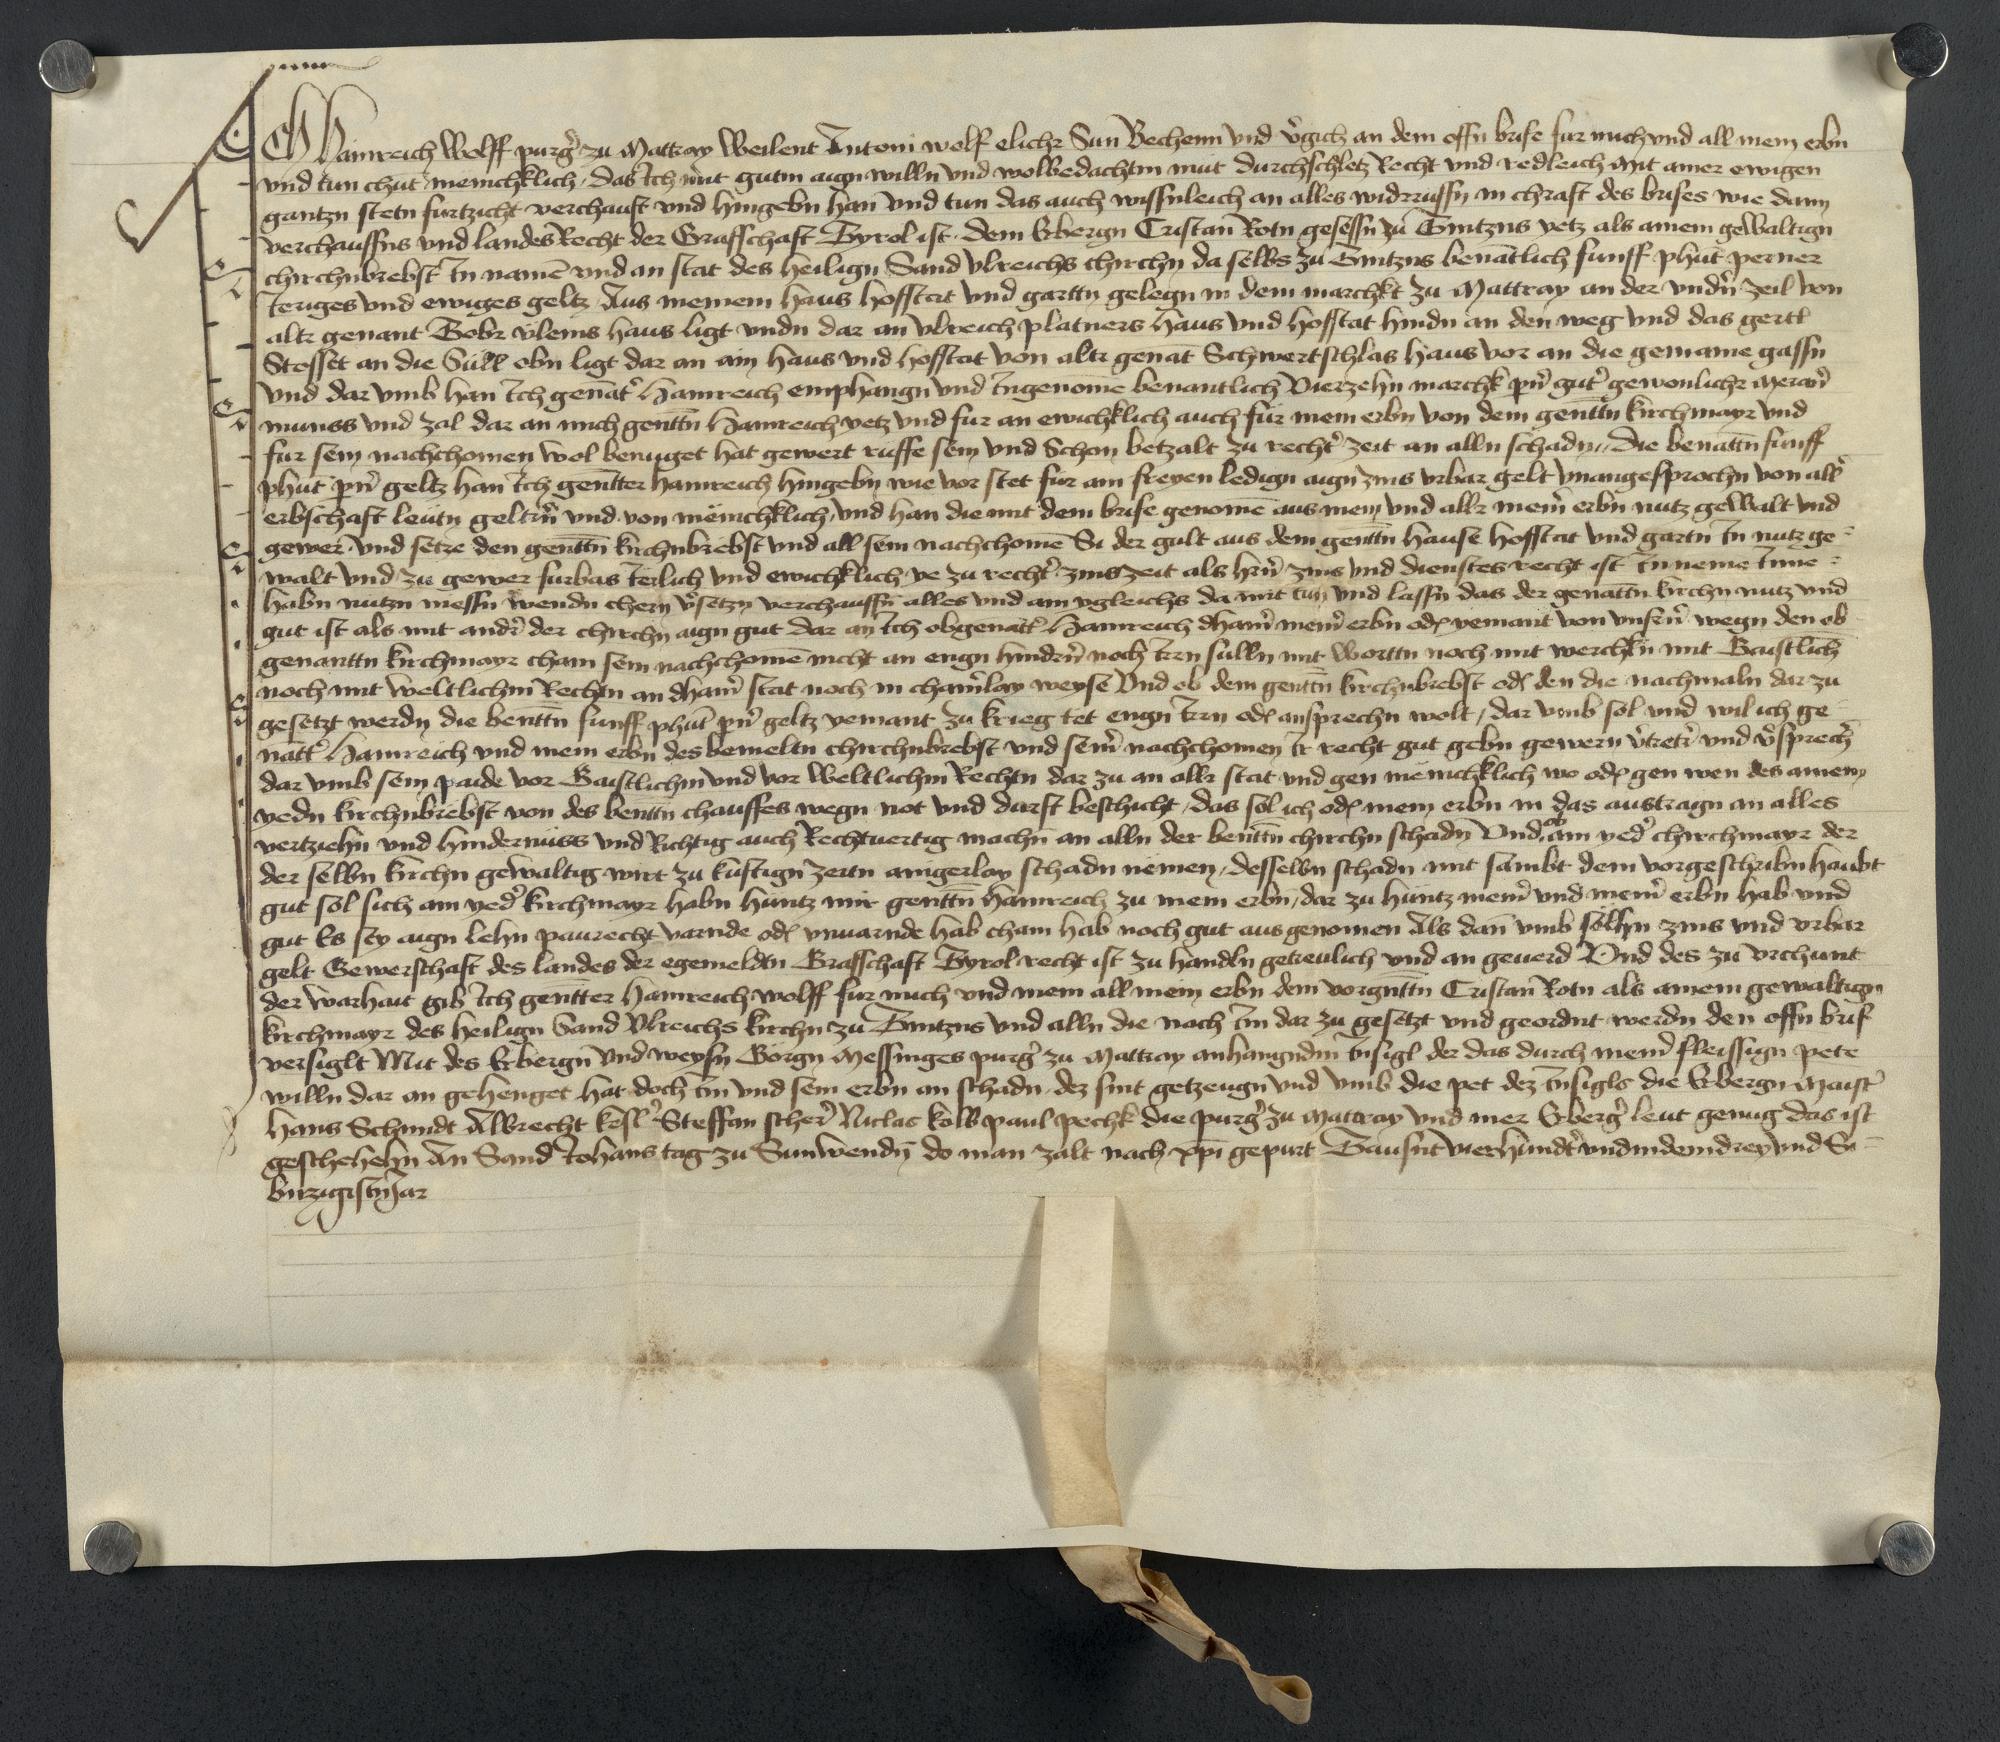 Ich Hainreich Wolff purgr̄ zu Mattray Weilent Antoni wolf elichr Sun Bechenn vnd v̄gich an dem offn̄ briefe fur mich vnd all mein erbn
vnd tun chunt meinchklich, das Ich mit gutm aign willn vnd wolbedachtm mut durchschletz Recht vnd redleich Mit ainer ewigen
gantzn stetn furtzicht verchauft vnd hingebn han vnd tun das auch wissnleich an alles widerruffn in chraft des brifes wie dann
verchauffns vnd landes Recht der Grafschaft Tyrol ist. dem Erbergn Cristan Rotn gesessn zu Tintzns yetz als ainem geWaltign
chirchnbrebst In namē vnd an stat des heilign Sand vlreichs chirchn da selbs zu Tintzns benātlich funff phūt perner
Ieriges vnd ewiges geltz Aus meinem haus hofstat vnd garttn gelegn in dem marchkt zu Mattray an der vndrn̄ zeil von
altr genant vlleins haus ligt vndn dar an vlreich platners haus vnd hofstat hindn an den weg vnd das gertl
Stosset an die Süll obn ligt dar an ain haus vnd hofstat von altr genāt Schwertschlas haus vor an die gemaine gassn
vnd dar vmb han Ich genāt Hainreich emphangn vnd Ingenomē benantlich Vierzehn marchk pn̄ gutr gewonlichr Meran̄
munss vnd zal dar an mich gentn̄ Hainreich yetz vnd fur an ewichklich auch für mein erbn von dem gentn̄ kirchmayr vnd
fur sein nachchomen wol benuget hat gewert ruffe sein vnd Schon betzalt zu rechtr zeit an alln schadn, die benāttn funff
phūt pn̄ geltz han Ich genn̄tter hainreich hingebn wie vor stet fur ain freyen ledign aign zins vrbar gelt vnangesprochn von allr
erbschaft leütn geltrn̄ vnd von meinchklich, vnd han die mit dem brife genomē aus mein vnd allr meinr erbn nutz geWalt vnd
gewer. vnd setze den gentn̄ kirchnbrebst vnd all sein nachchomē Si der gult aus dem gentn̄ hause hofstat vnd gartn In nutz ge-
walt vnd zu gewer furbas Ierlich vnd ewichklich ye zu rechtr zinszeit als hrn̄ zins vnd dienstes recht ist In neme Inne-
habn nutzn niessn wendn chern v̄setzn verchauffn alles vnd ain ygleichs da mit tun vnd lassn das der genāttn kirchn nutz vnd
gut ist als mit andr der chirchn aign gut dar an Ich obgenatr Hainreich dhainr meinr erbn odr yemant von vnsrn̄ wegn den ob-
genanttn kirchmayr chain sein nachchomē nicht an engn hindrn̄ noch Irrn sulln mit Worttn noch mit werchkn mit Gaistlich̄
noch mit Weltlichm Rechtn an dhainr stat noch in chainrlay weyse Vnd ob dem gentn̄ kirchnbrebst odr den die nachmaln dar zu
gesetzt werdn die bentn̄ funff phūt pn̄ geltz yemant zu krieg tet engn Irrn odr ansprechn wolt, dar vmb sol vnd wil ich ge-
nātr Hainreich vnd mein erbn des bemeltn chirchnbrebst vnd seinr nachchomen Ir recht gut gebn gewern v̄tretr vnd v̄sprech̄
dar vmb sein paide vor Gaistlichm vnd vor Weltlichm Rechtn dar zu an allr stat vnd gen meinchklich wo odr gen wen des ainem
yedn kirchnbrebst von des bentn̄ chauffes wegn not vnd durft beschicht, das sol ich odr mein erbn in das austragn an alles
vertziehn vnd hindernüss vnd Richtig auch Rechtuertig machn an alln der bentn̄ chirchn schadn Vnd ob ain yedr chirchmayr der
der selbn kirchn gewaltig wirt zu kuftign zeitn ainigerlay schadn nemen, desselbn schadn mit sambt dem vorgeschribn haubt
gut sol sich ain yedr kirchmayr habn huntz mir gentn̄ hainreich zu mein erbn, dar zu huntz meinr vnd meinr erbn hab vnd
gut Es sey aign lehn paurecht varnde odr vnuarnde hab chain hab noch gut ausgenomen Als dan̄ vmb solhn zins vnd vrbar
gelt Gewerschaft des landes der egemeldtn Grafschaft Tyrol recht ist zu handln getreulich vnd an geuerd Vnd des zu vrchunt
der Warhait gib Ich genn̄tter Hainreich Wolff fur mich vnd mein all mein erbn dem vorgntn̄ Cristan Rotn als ainem gewaltign
kirchmayr des heilign Sand Vlreichs kirchn zu Tintzns vnd alln die nach Im dar zu gesetzt vnd geordnt werdn den offn brif
versiglt Mit des Erbergn vnd weysn Görgn Messinges purgr̄ zu Mattray anhangndm Insigl der das durch meinr fleissign pete
willn dar an gehenget hat doch Im vnd sein erbn an schadn. dez sint getzeugn vnd vmb die pet dez Insigls die Erbergn Maistr
Hans Schmidt Albrecht kesslr Steffan scherr Niclas kolb paul pechk die purgr̄ zu Mattray vnd mer Erbergr leut genug das ist
geschehehn An Sand Johans tag zu Sunwendn̄ do man zalt nach xp̄i gepurt Tausnt vierhundtr vnd in dem drey vnd Si-
binzigistn Jar